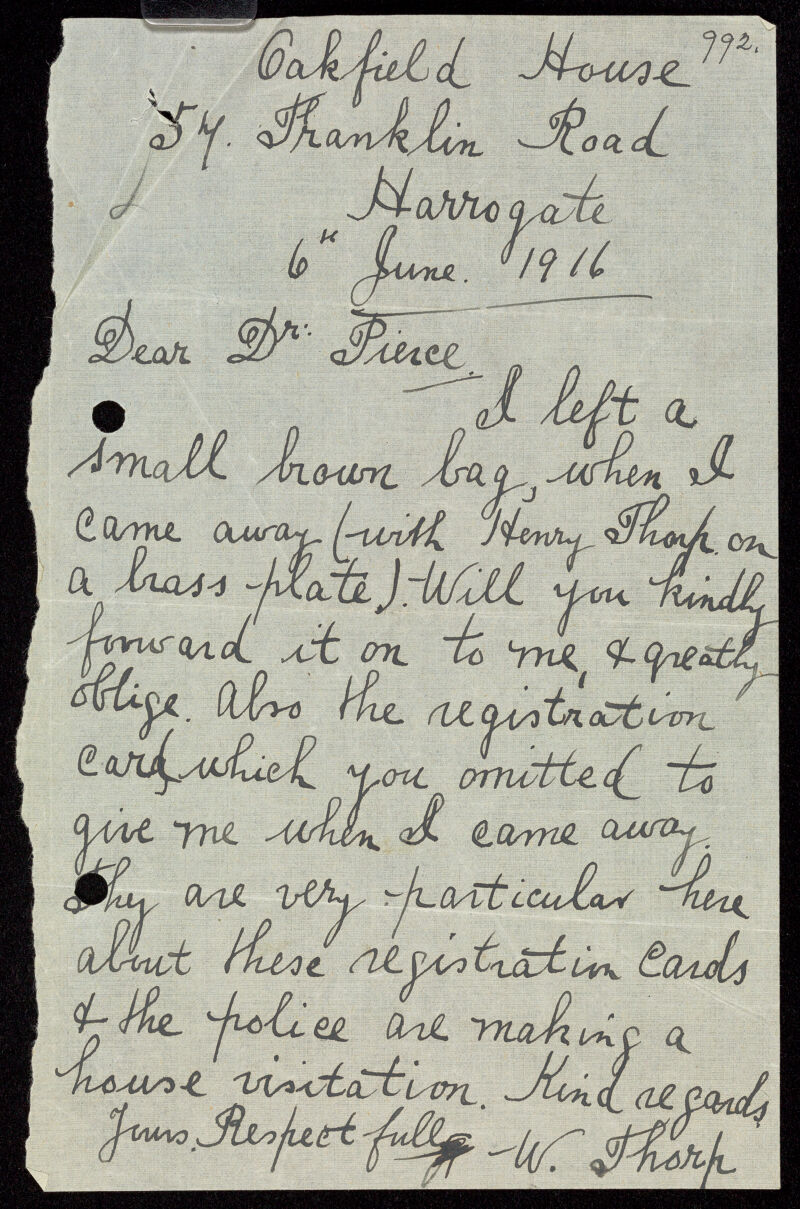 992.
Oakfield House
57. Franklin Road
Harrogate
6th June. 1916
Dear Dr. Pierce.
I left a
small brown bag, when I
came away (with Henry Thorp. on
a brass plate.). Will you kindly
forward it on to me, & greatly
oblige. Also the registration
card, which you omitted to
give me when I came away.
They are very particular here
about these registration Cards
& the police are making a
house visitation. Kind regards.
Yours. Respectfully W. Thorp